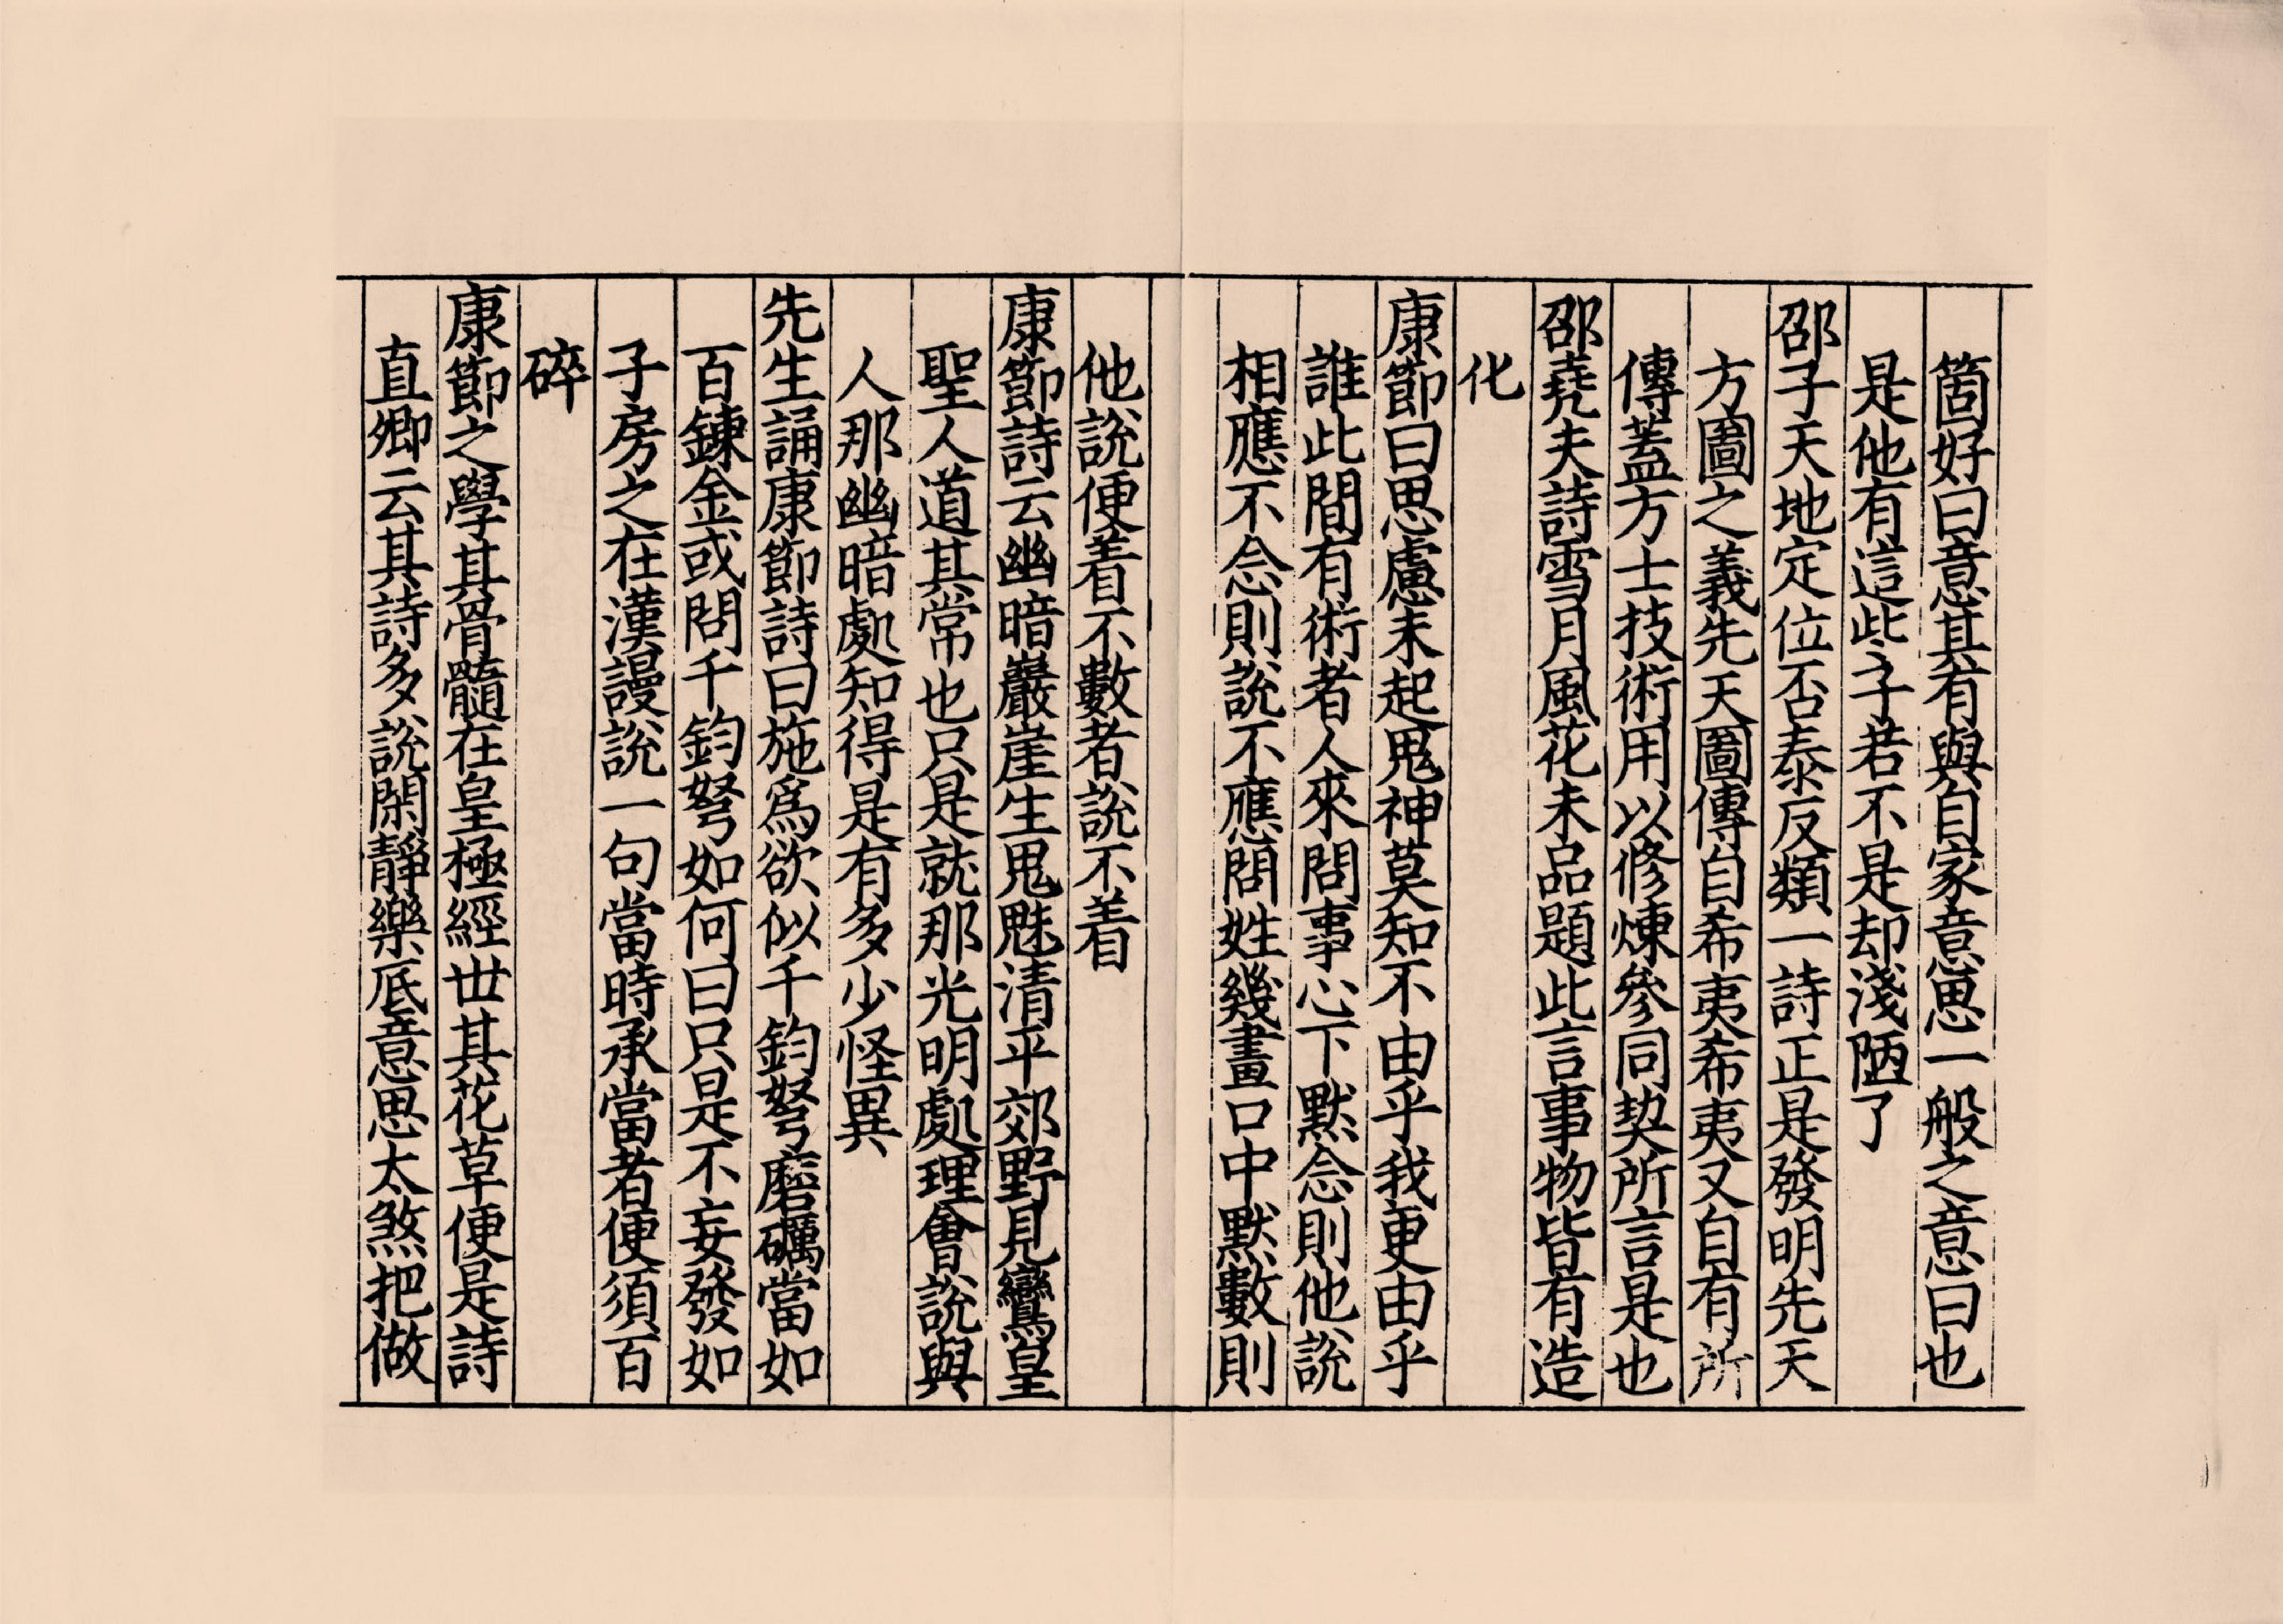 箇好曰意其有與自家意思一般之意曰也
是他有這些子若不是却淺陋了
邵子天地定位否泰反類一詩正是發明先天
方圖之義先天圖傳自希夷希夷又自有所
傳蓋方士技術用以修煉參同契所言是也
邵堯夫詩雪月風花未品題此言事物皆有造
化
康節曰思慮未起鬼神莫知不由乎我更由乎
誰此間有術者人來問事心下默念則他說
相應不念則說不應問姓幾畫口中默數則
他說便着不數者說不着
康節詩云幽暗巖崖生鬼魅清平郊野見鸞皇
聖人道其常也只是就那光明處理會說與
人那幽暗處知得是有多少怪異
先生誦康節詩曰施爲欲似千鈞弩磨礪當如
百鍊金或問千鈞弩如何曰只是不妄發如
子房之在漢謾說一句當時承當者便須百
碎
康節之學其骨髓在皇極經世其花草便是詩
直卿云其詩多說閑靜樂底意思太煞把做